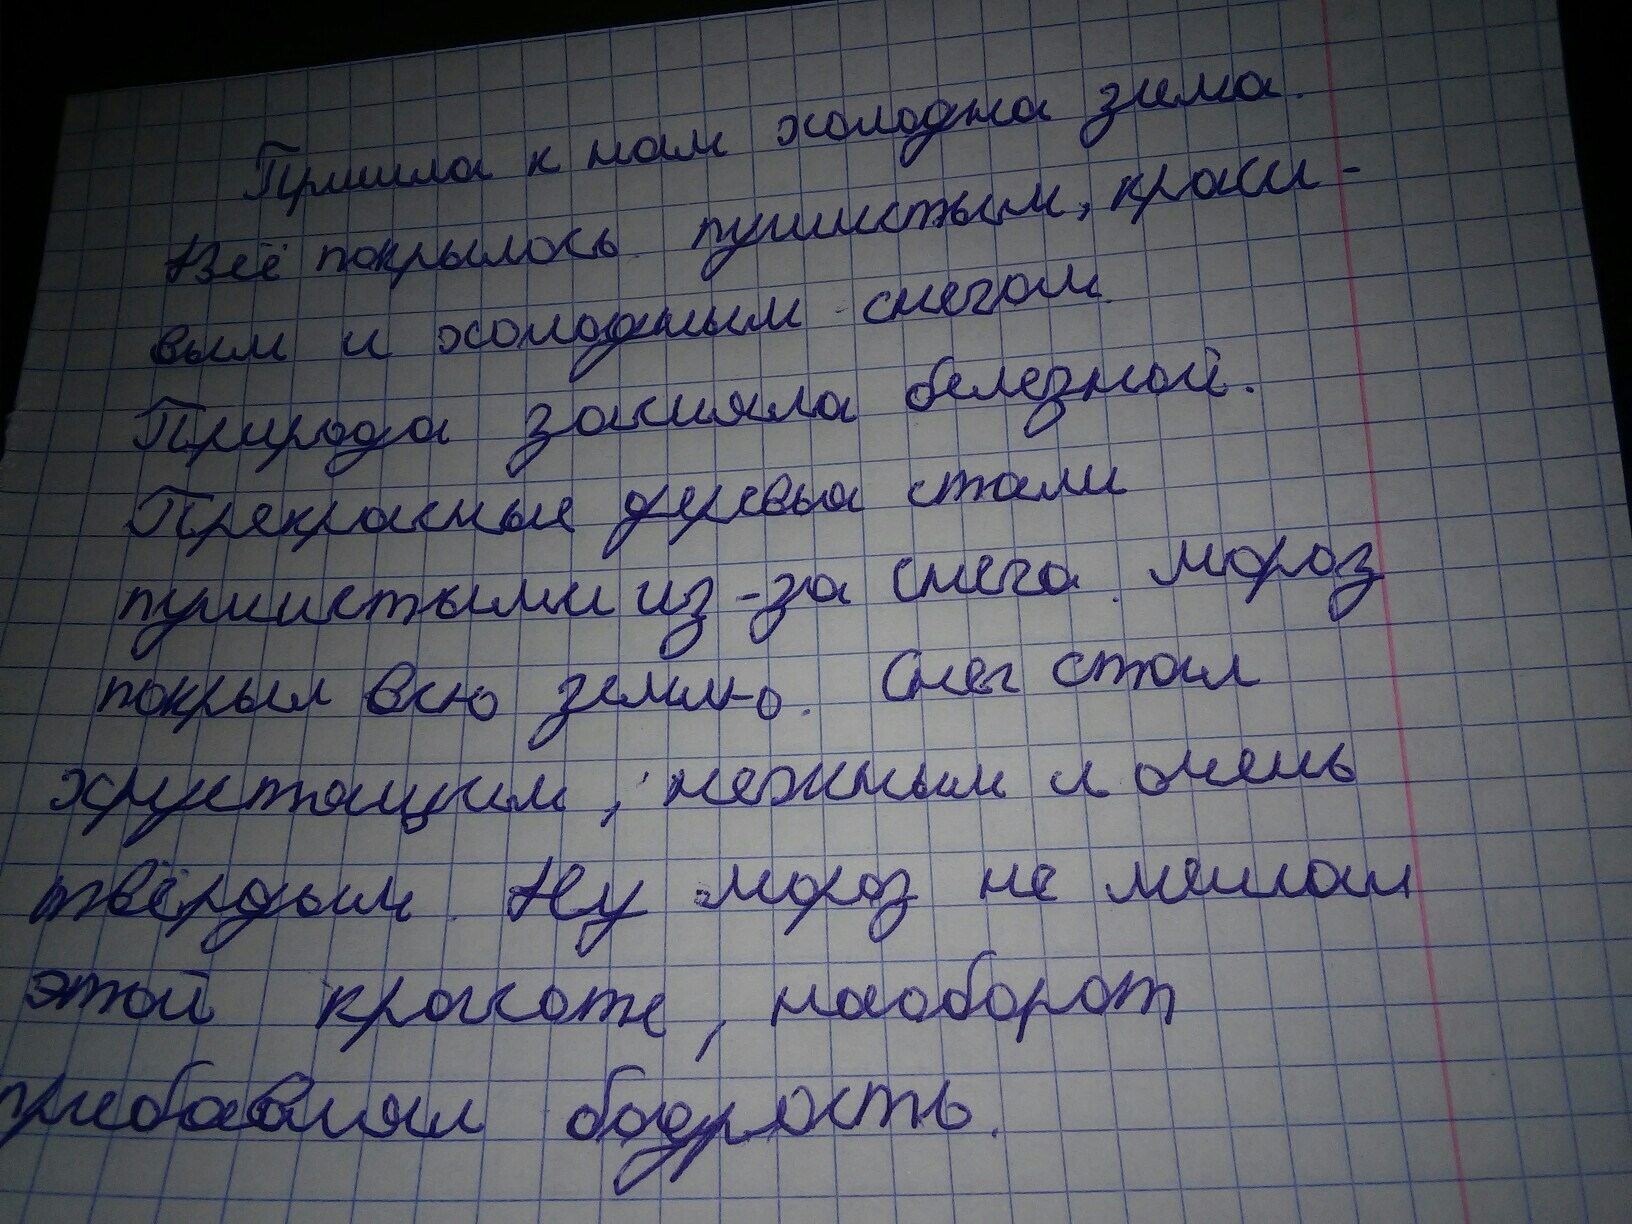 Пришла к нам холодна зима.
Всё покрылось пушистым, краси-
вым и холодным снегом.
Природа засияла белезной.
Прекрасные деревья стали
пушистыми из-за снега. мороз
покрыл всю землю. Снег стал
хрустящим, нежным и очень
твёрдым. Ну мороз не мешал
этой красоте, наоборот
прибавлял бодрость.